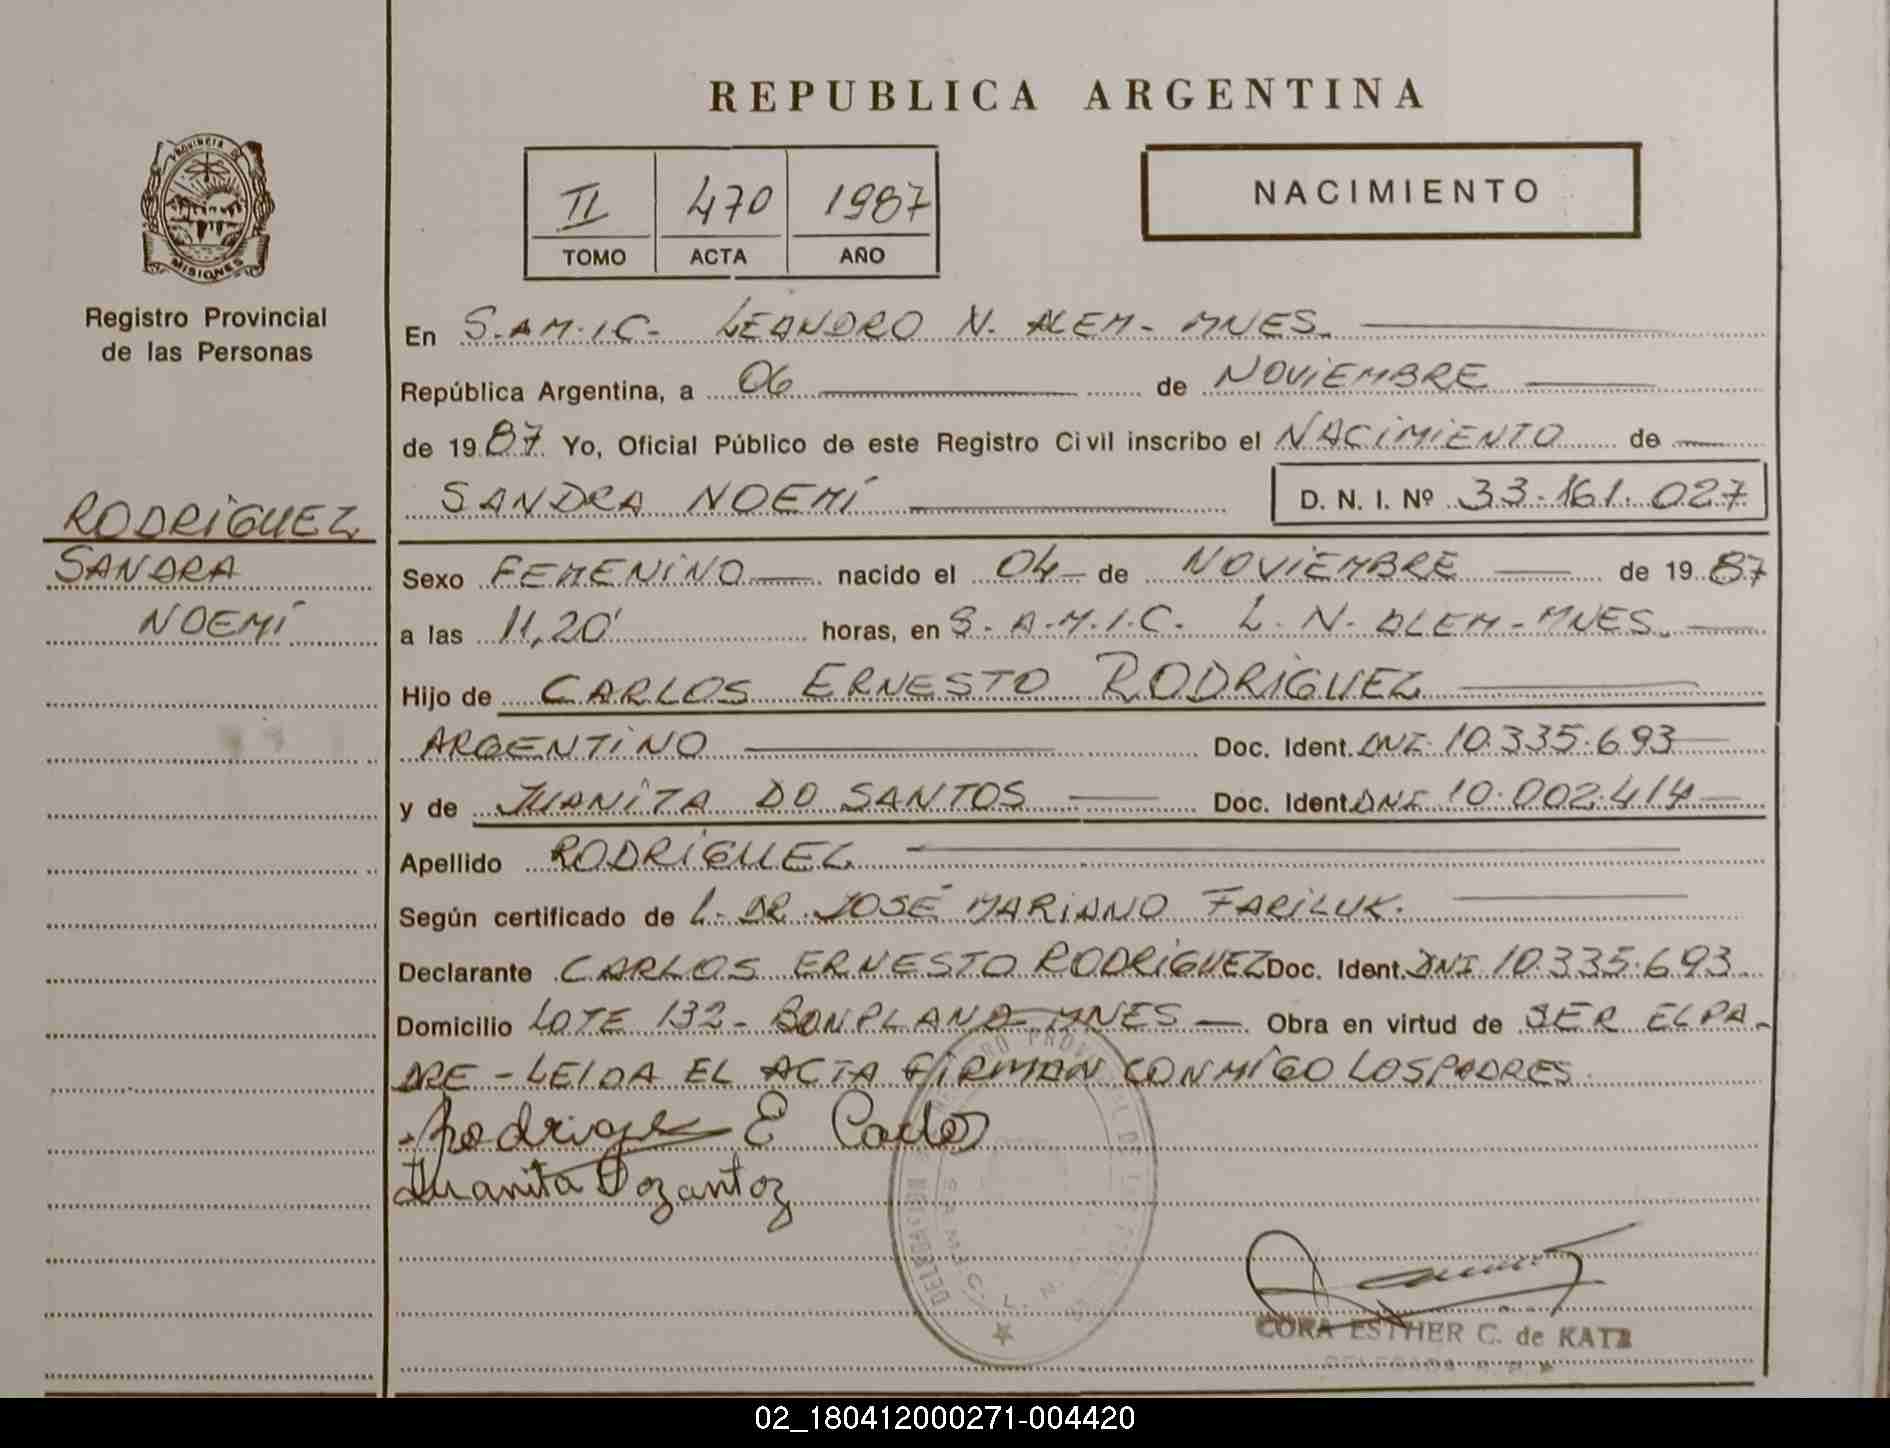 REPUBLICA ARGENTINA
PROVINCIA DE
MISIONES
Registro Provincial
de las Personas
II 470 1987
TOMO ACTA AÑO
NACIMIENTO
En S.A.M.I.C. LEANDRO N. ALEM - MNES.
República Argentina, a 06 de NOVIEMBRE
de 1987 Yo, Oficial Público de este Registro Civil inscribo el NACIMIENTO de
SANDRA NOEMÍ D. N. I. Nº 33.161.027
RODRIGUEZ
SANDRA
NOEMÍ
Sexo FEMENINO nacido el 04 de NOVIEMBRE de 1987
a las 11,20' horas, en S.A.M.I.C. L. N. ALEM - MNES.
Hijo de CARLOS ERNESTO RODRIGUEZ
ARGENTINO Doc. Ident. DNI 10.335.693
y de JUANITA DO SANTOS Doc. Ident. DNI 10.002.414
Apellido RODRIGUEZ
Según certificado de L. DR. JOSÉ MARIANO FARILUK.
Declarante CARLOS ERNESTO RODRIGUEZ Doc. Ident. DNI 10.335.693
Domicilio LOTE 132 - BONPLAND - MNES Obra en virtud de SER EL PA-
DRE - LEIDA EL ACTA FIRMAN CONMIGO LOS PADRES.
Rodriguez E Carlos
Juanita Dozantoz
CORA ESTHER C. de KATZ
DELEGADA
02_180412000271-004420